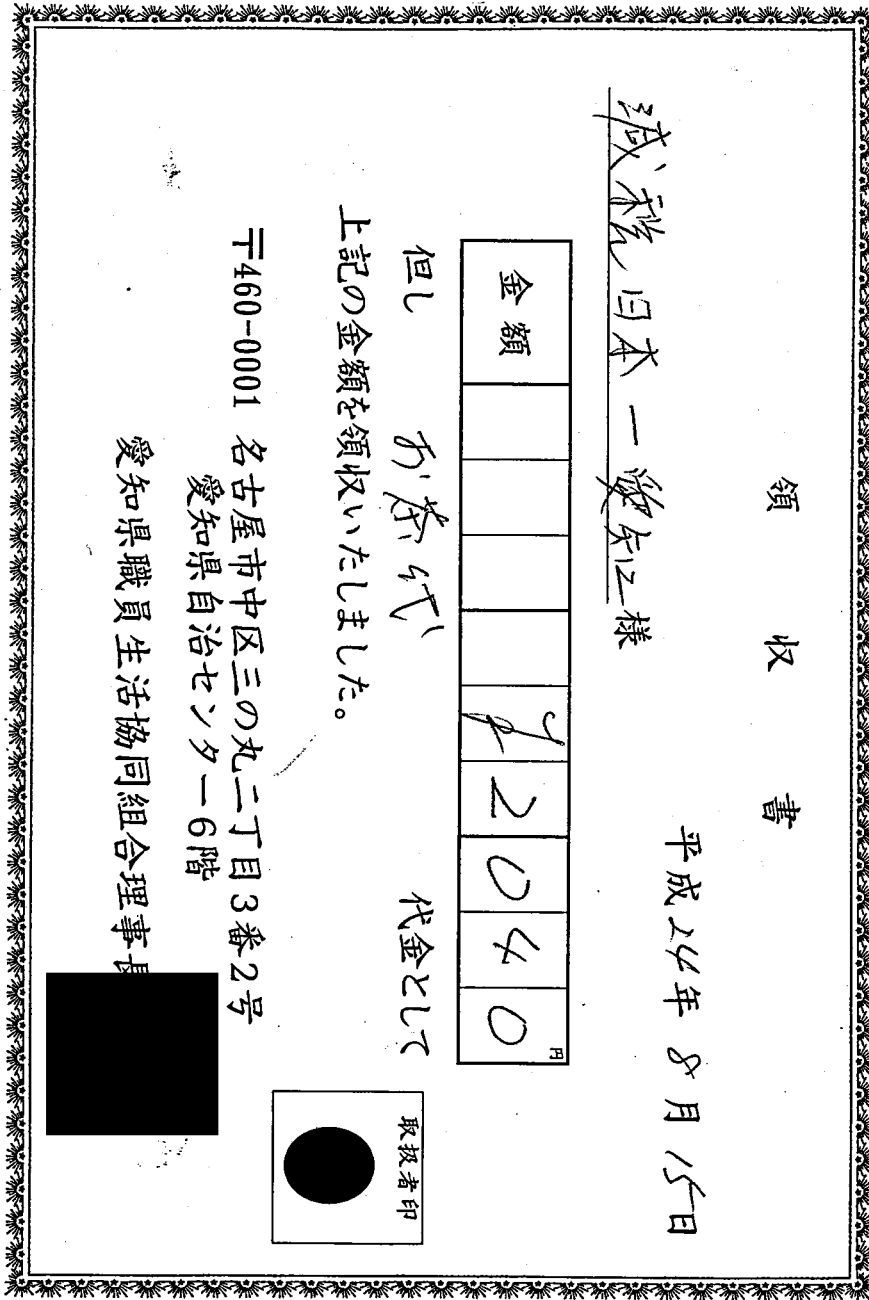 領収書
平成24年8月15日
減税日本一愛知様
金額 ¥2040円
但し お茶代 代金として
上記の金額を領収いたしました。
〒460-0001 名古屋市中区三の丸二丁目3番2号
愛知県自治センター6階
愛知県職員生活協同組合理事長
取扱者印